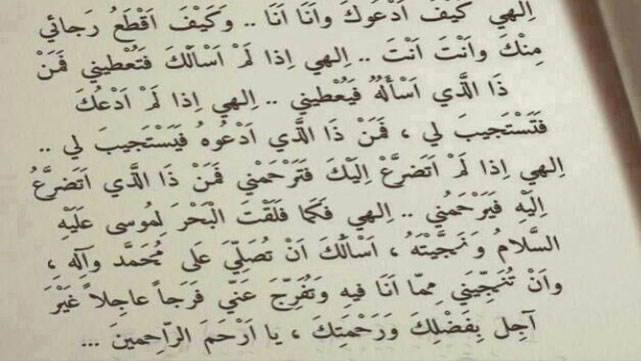 اِلهي كَيْفَ اَدْعُوكَ وَاَنَا اَنَا .. وَكَيْفَ اَقْطَعُ رَجائي
مِنْكَ وَاَنْتَ اَنْتَ .. اِلهي اِذا لَمْ اَسْاَلْكَ فَتُعْطيني فَمَنْ
ذَا الَّذي اَسْأَلُهُ فَيُعْطيني .. اِلهي اِذا لَمْ اَدْعُكَ
فَتَسْتَجيبَ لي ، فَمَنْ ذَا الَّذي اَدْعُوهُ فَيَسْتَجيبَ لي ..
اِلهي اِذا لَمْ اَتَضَرَّعْ اِلَيْكَ فَتَرْحَمْني فَمَنْ ذَا الَّذي اَتَضَرَّعُ
اِلَيْهِ فَيَرْحَمُني .. اِلهي فَكَما فَلَقْتَ الْبَحْرَ لِمُوسى عَلَيْهِ
السَّلامُ وَنَجَّيْتَهُ ، اَسْاَلُكَ اَنْ تُصَلِّيَ عَلى مُحَمَّد وَآلِه ،
وَاَنْ تُنَجِّيَني مِمّا اَنَا فيهِ وَتُفَرِّجَ عَنّي فَرَجاً عاجِلاً غَيْرَ
آجِل بِفَضْلِكَ وَرَحْمَتِكَ ، يا اَرْحَمَ الرّاحِمينَ ...